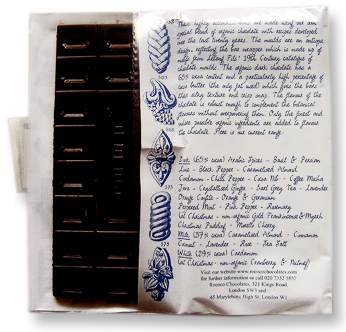 These highly
special blend of organic chocolate with recipes developed
over the last twenty years. The moulds are an antique
design, reflecting the box wrapper which is made up of
motifs from Letang Fils' 19th Century catalogue of
chocolate moulds. The organic dark chocolate has a
65% cocoa content and a particularly high percentage of
cocoa butter (the only fat used) which give the bars
this silky texture and crisp snap. The flavour of the
chocolate is robust enough to complement the botanical
flavours without overpowering them. Only the finest and
where possible organic ingredients are added to flavour
the chocolate. Here is our current range:
Dark (65% cocoa) Arabic Spices - Basil & Persian
Lime - Black Pepper - Caramelised Almond
Cardamom - Chilli Pepper - Cocoa Nib - Coffee Mocha
Java - Crystallised Ginger - Earl Grey Tea - Lavender
Orange Confit - Orange & Geranium
Peppered Mint - Pink Pepper - Rosemary
(at Christmas - non organic Gold Frankincense & Myrrh
Christmas Pudding) - Morello Cherry
Milk (37% cocoa) Caramelised Almond - Cinnamon
Carnet - Lavender - Rose - Sea Salt
White (29% cocoa) Cardamom
(at Christmas - non-organic Cranberry & Nutmeg)
Visit our website www.rococochocolates.com
for further information or call 020 7352 5857
Rococo Chocolates, 321 Kings Road,
London SW3 and
45 Marylebone High St, London W1